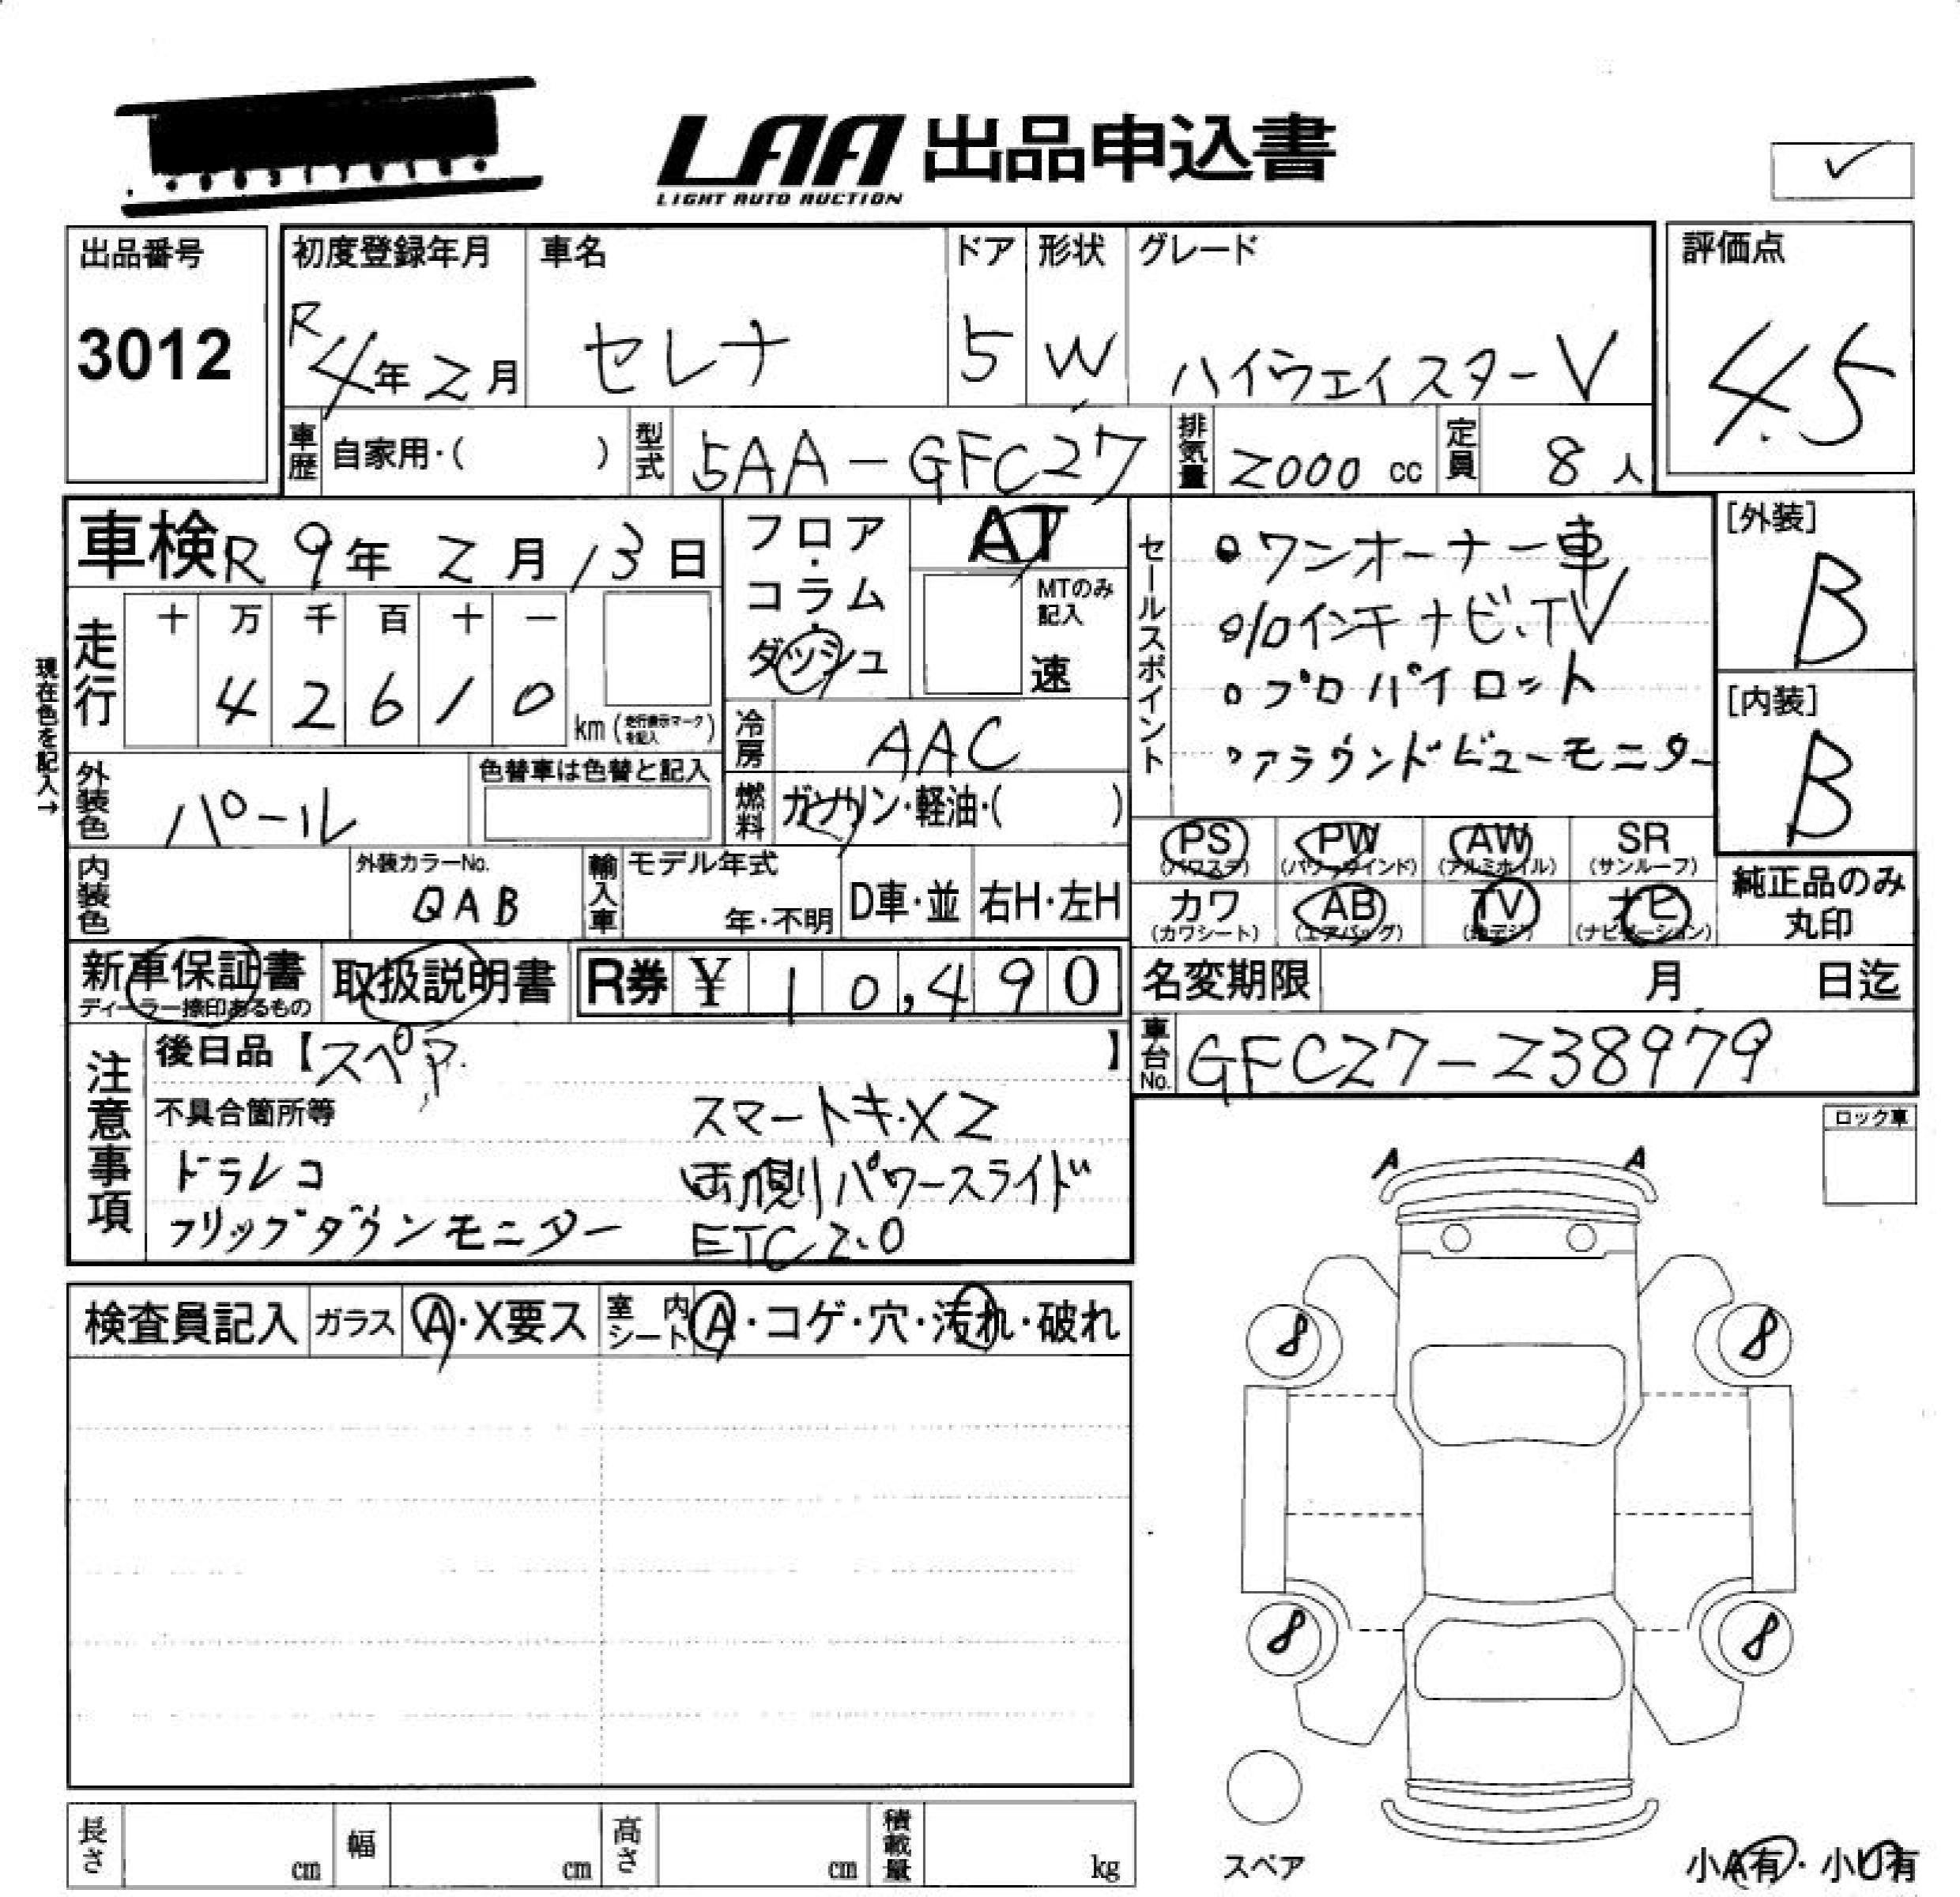 LAA 出品申込書
LIGHT AUTO AUCTION
✓
出品番号
3012
初度登録年月
R4年2月
車名
セレナ
ドア
5
形状
W
グレード
ハイウェイスターV
評価点
4.5
車歴 自家用・( )
型式 5AA-GFC27
排気量 2000 cc
定員 8人
車検 R9年2月13日
フロア・コラム・ダッシュ
AT
MTのみ記入
速
セールスポイント
ワンオーナー車
10インチナビ、TV
プロパイロット
アラウンドビューモニター
[外装]
B
[内装]
B
現在色を記入→
走行
十 万 千 百 十 一
4 2 6 1 0
km (走行表示マークを記入)
冷房 AAC
外装色 パール
色替車は色替と記入
燃料 ガソリン・軽油・( )
PS (パワステ) PW (パワーウインド) AW (アルミホイル) SR (サンルーフ)
カワ (カワシート) AB (エアバッグ) TV (地デジ) ナビ (ナビゲーション)
純正品のみ丸印
内装色
外装カラーNo.
QAB
輸入車
モデル年式
年・不明
D車・並
右H・左H
新車保証書
ディーラー捺印あるもの
取扱説明書
R券 ¥10,490
名変期限 月 日迄
車台No. GFC27-238979
注意事項
後日品【スペア 】
不具合箇所等
スマートキ・X2
ドラレコ
両側パワースライド
フリップダウンモニター
ETC2.0
ロック車
A A
検査員記入 ガラス A・X要ス 室内シート A・コゲ・穴・汚れ・破れ
8 8
8 8
スペア
小A有・小U有
長さ cm 幅 cm 高さ cm 積載量 kg